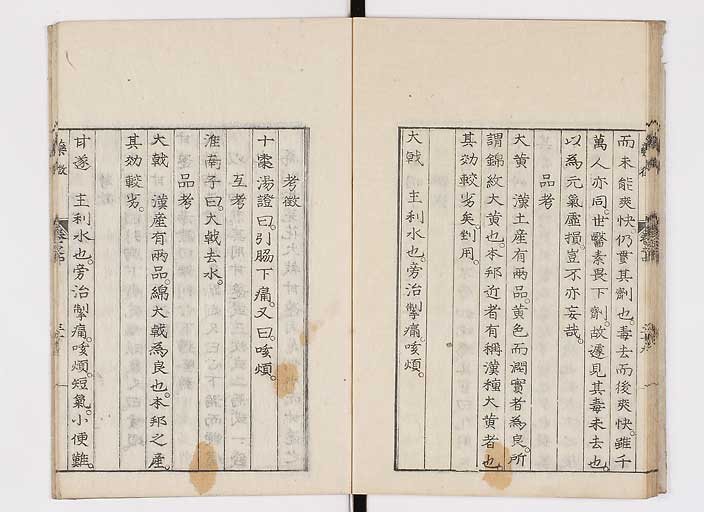 而未能爽快仍貫其劑也。毒去而後爽快。雖千
萬人亦同。世醫素畏下劑。故遽見其毒未去也。
以為元氣虛損。豈不亦妄哉。
品考
大黃 漢土產有兩品。黃色而潤實者為良。所
謂錦紋大黃也。本邦近者有稱漢種大黃者也。
其効較劣矣。剉用。
大戟 主利水也。旁治掣痛。咳煩。
考徵
十棗湯證曰。引脇下痛。又曰。咳煩。
互考
淮南子曰。大戟去水。
品考
大戟 漢產有兩品。綿大戟為良也。本邦之產。
其効較劣。
甘遂 主利水也。旁治掣痛。咳煩。短氣。小便難。
藥徵